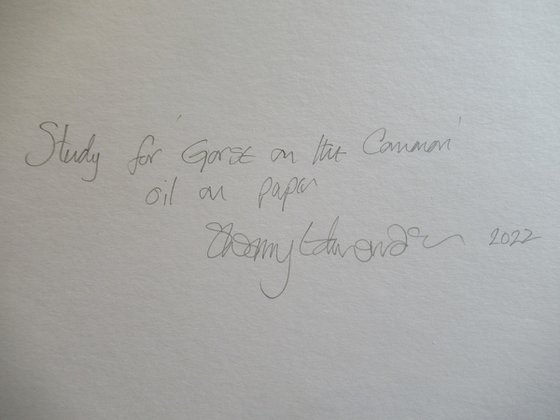 Study for 'Gorse on the Common'
oil on paper
Edwards 2022